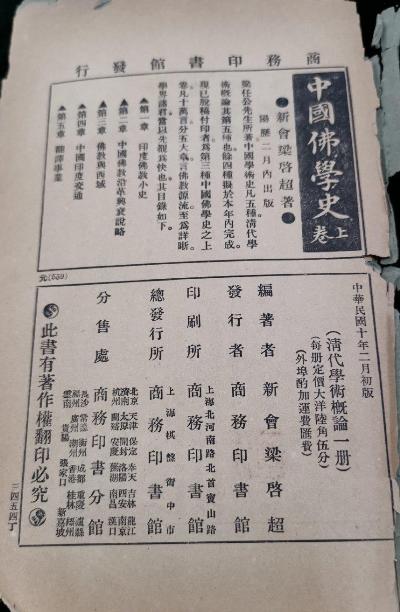 商務印書館發行
中國佛學史 卷上
新會梁啓超著
陽曆二月內出版
梁任公先生所著中國學術史凡五種清代學
術概論其第五種也餘四種擬於本年內完成
現已脫稿付印者爲第三種中國佛學史之上
卷凡十萬言分五大章言佛教源流至爲詳晰
學界諸君當以先覩爲快也其目錄如下
▲第一章 印度佛教小史
▲第二章 中國佛教沿革興衰說略
▲第三章 佛教與西域
▲第四章 中國印度交通
▲第五章 翻譯事業
元(559)
中華民國十年二月初版
(清代學術概論一册)
(每册定價大洋陸角伍分)
(外埠酌加運費匯費)
編著者 新會梁啓超
發行者 商務印書館
印刷所 上海北河南路北首寶山路 商務印書館
總發行所 上海棋盤街中市 商務印書館
分售處 商務印書分館
北京 天津 保定 奉天 吉林 龍江
濟南 太原 開封 洛陽 西安 南京
杭州 蘭谿 安慶 蕪湖 南昌 漢口
長沙 常德 衡州 成都 重慶 瀘縣
福州 廣州 潮州 香港 桂林 梧州
雲南 貴陽 張家口 新嘉坡
此書有著作權翻印必究
二四五四丁